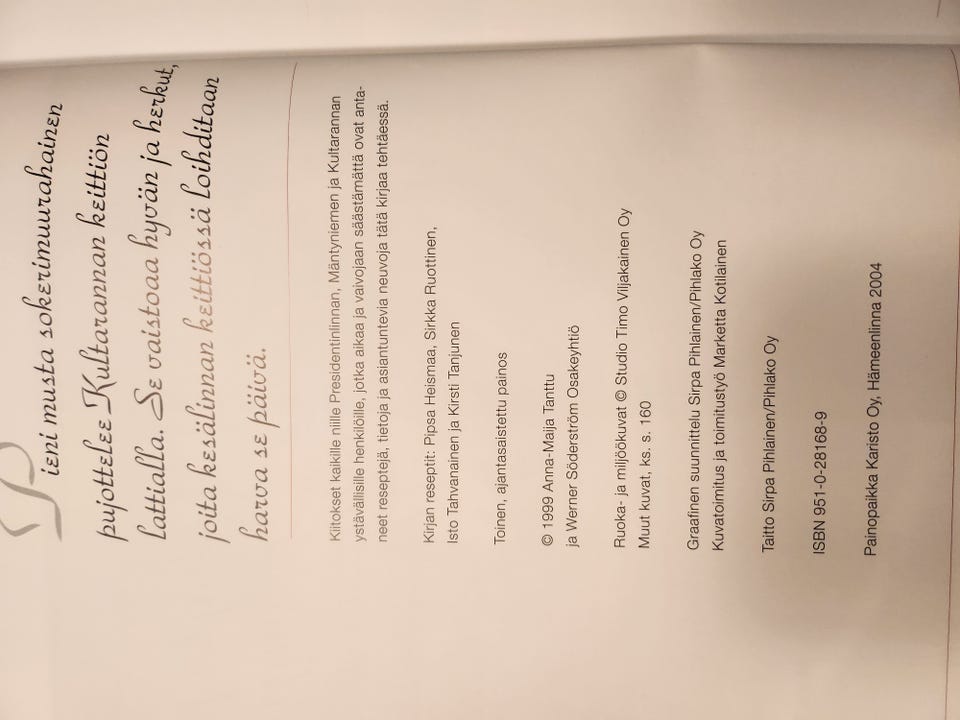 Pieni musta sokerimuurahainen
pujottelee Kultarannan keittiön
lattialla. Se vaistoaa hyvän ja herkut,
joita kesälinnan keittiössä loihditaan
harva se päivä.
Kiitokset kaikille niille Presidentinlinnan, Mäntyniemen ja Kultarannan
ystävällisille henkilöille, jotka aikaa ja vaivojaan säästämättä ovat anta-
neet reseptejä, tietoja ja asiantuntevia neuvoja tätä kirjaa tehtäessä.
Kirjan reseptit: Pipsa Heismaa, Sirkka Ruottinen,
Isto Tahvanainen ja Kirsti Tanjunen
Toinen, ajantasaistettu painos
© 1999 Anna-Maija Tanttu
ja Werner Söderström Osakeyhtiö
Ruoka- ja miljöökuvat © Studio Timo Viljakainen Oy
Muut kuvat. ks. s. 160
Graafinen suunnittelu Sirpa Pihlainen/Pihlako Oy
Kuvatoimitus ja toimitustyö Marketta Kotilainen
Taitto Sirpa Pihlainen/Pihlako Oy
ISBN 951-0-28168-9
Painopaikka Karisto Oy, Hämeenlinna 2004